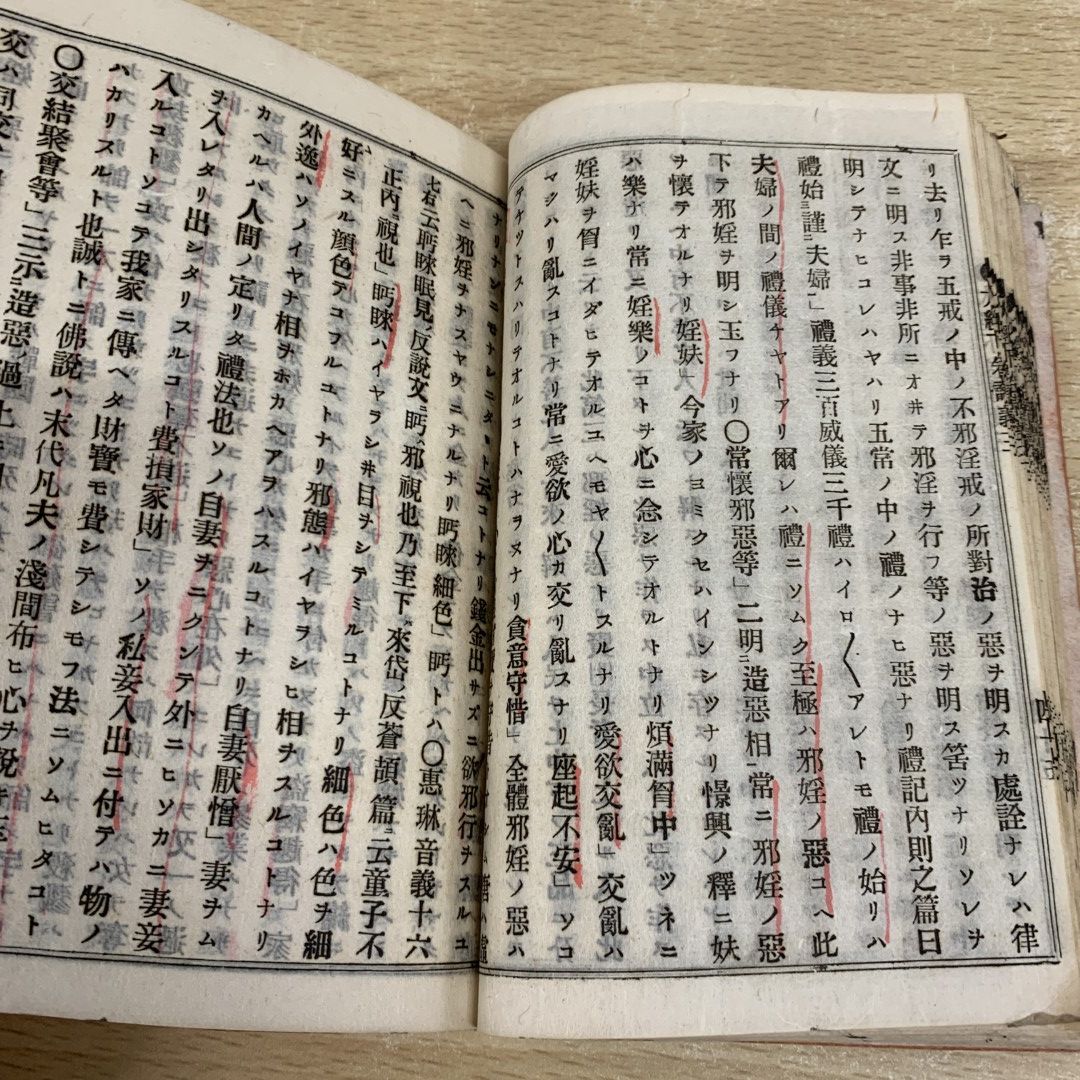 リ去リ乍ラ五戒ノ中ノ不邪淫戒ノ所對治ノ惡ヲ明スカ處詮ナレハ律
文ニ明ス非事非所ニオ井テ邪淫ヲ行フ等ノ惡ヲ明ス筈ツナリソレヲ
明シテナヒコレハヤハリ五常ノ中ノ禮ノナヒ惡ナリ禮記內則之篇曰
禮始謹夫婦」禮義三百威儀三千禮ハイロ〱アレトモ禮ノ始リハ
夫婦ノ間ノ禮儀チヤトアリ爾レハ禮ニソムク至極ハ邪婬ノ惡コヘ此
下テ邪婬ヲ明シ玉フナリ〇常懷邪惡等」二明造惡相常ニ邪婬ノ惡
ヲ懷テオルナリ婬妷今家ノヨミクセハイシシツナリ憬興ノ釋ニ妷
ハ樂ナリ常ニ婬樂ノコトヲ心ニ念シテオルトナリ煩滿胷中」ツネニ
婬妷ヲ胷ニイダヒテオルユヘモヤ〱トスルナリ愛欲交亂」交亂ハ
マジハリ亂スコトナリ常ニ愛欲ノ心カ交リ亂スナリ座起不安」ソコ
テヤツトスハリテオルコトハナラヌナリ貪意守惜」全體邪婬ノ惡ハ
ヘニ邪婬ヲナスヤウニナルナリ眄睞細色」眄トハ〇惠琳音義十六
七右云眄睞眠見反說文眄邪視也乃至下來岱反蒼頡篇云童子不
正內視也」眄睞ハイヤラシ井目ヲシテミルコトナリ細色ハ色ヲ細
好ニスル顏色テコフルコトナリ邪態ハイヤラシヒ相ヲスルコトナリ
外逸ハソノイヤナ相ヲホカヘアラハスルコトナリ自妻厭憎」妻ヲム
カヘルハ人間ノ定リタ禮法也ソノ自妻ヲニクンテ外ニヒソカニ妻妾
ヲ入レタリ出シタリスルコト費損家財」ソノ私妾入出ニ付テハ物ノ
入ルコトソコテ我家ニ傳ヘタ財寶モ費シテシモフ法ニソムヒタコト
ハカリスルト也誠トニ佛說ハ末代凡夫ノ淺間布ヒ心ヲ說キ
〇交結聚會等」三示造惡過